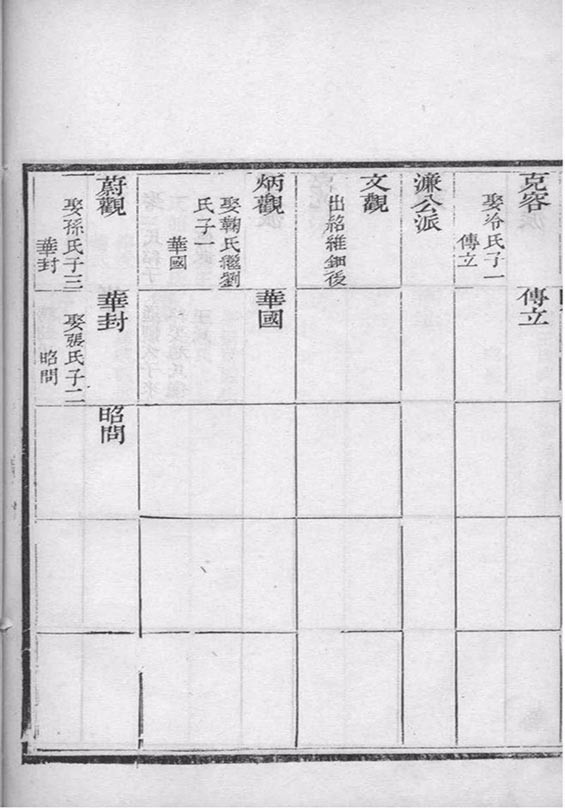 克容
娶冷氏子一
傳立
傳立
濂公派
文觀
出紹維鈿後
炳觀
娶鞠氏繼劉
氏子一
華國
華國
蔚觀
娶孫氏子三
華封
華封
娶張氏子二
昭問
昭問